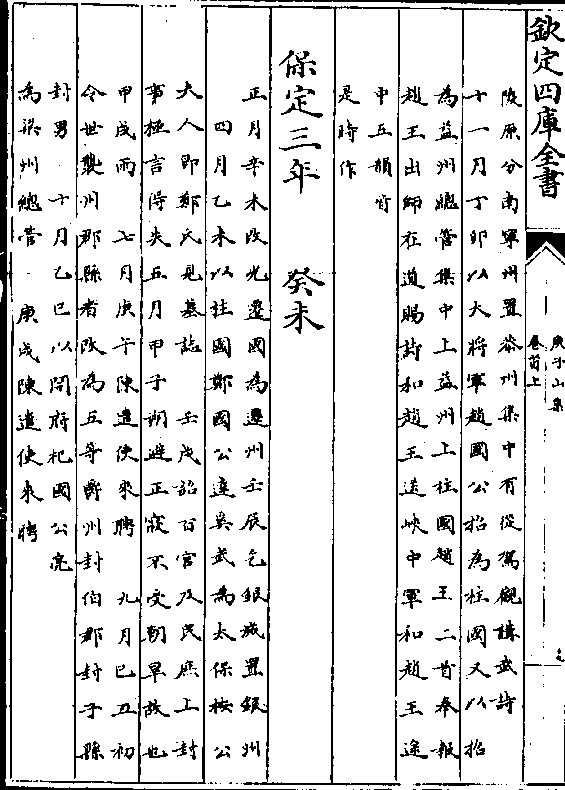 欽定四庫全書
庾子山集
卷首上
陵原分南寧州置恭州集中有從駕觀講武詩
十一月丁卯以大將軍趙國公招為柱國又以招
為益州總管集中上益州上柱國趙王二首奉報
趙王出師在道賜詩和趙王送峽中軍和趙王途
中五韻皆
是時作
保定三年　癸未
正月辛未改光遷國為遷州壬辰乞銀城置銀州
四月乙未以柱國鄭國公達奚武為太保按公
夫人即鄭氏見墓誌　壬戌詔百官及民庶上封
事極言得失五月甲子朔避正寢不受朝旱故也
甲戌雨　七月庚午陳遣使來聘　九月己丑初
令世襲州郡縣者改為五等爵州封伯郡封子縣
封男　十月乙巳以開府杞國公亮
為梁州總管　庚戌陳遣使來聘